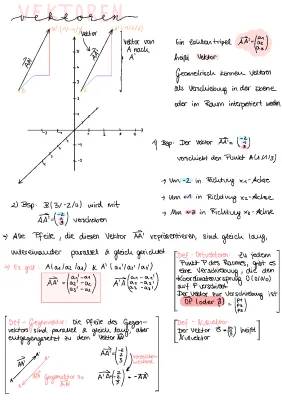 VEKTOREN
vektoren
Vektor
Vektor von
A nach
A'
Ein Zahlentripel AA' = (a1 a2 a3)
heißt Vektor.
Geometrisch können Vektoren
als Verschiebung in der Ebene
oder im Raum interpretiert werden
1) Bsp: Der Vektor AA' = (-2
verschiebt den Punkt A
→ Um -2 in Richtung x1-Achse
→ Um in Richtung x2-Achse
→ Um in Richtung Achse
2) Bsp. B(3/-2/0) wird mit
AA' = verschoben
→ Alle Pfeile, die diesen Vektor AA' repräsentieren, sind gleich lang,
untereinander parallel & gleich gerichtet
→ Es gilt A(a1/a2/a3) & A'(a1'/a2'/a3')
AA' = (a1'-a1 a2'-a2 a3'-a3) A'A = (a1-a1' a2-a2' a3-a3')
Def - Ortsvektoren Zu jedem
Punkt P des Raumes, gibt es
eine Verschiebung, die den
Koordinatenursprung O(0/0/0)
auf P verschiebt.
Der Vektor zur Verschiebung ist
OP (oder p) = (p1 p2 p3)
Def - Gegenvektor Die Pfeile des Gegen-
vektors sind parallel & gleich lang, aber
entgegengesetzt zu dem Vektor AA'
AA' =
Gegenvektor zu AA'
A'A = = -AA'
Def - Nullvektor
Der Vektor = heißt
Nullvektor